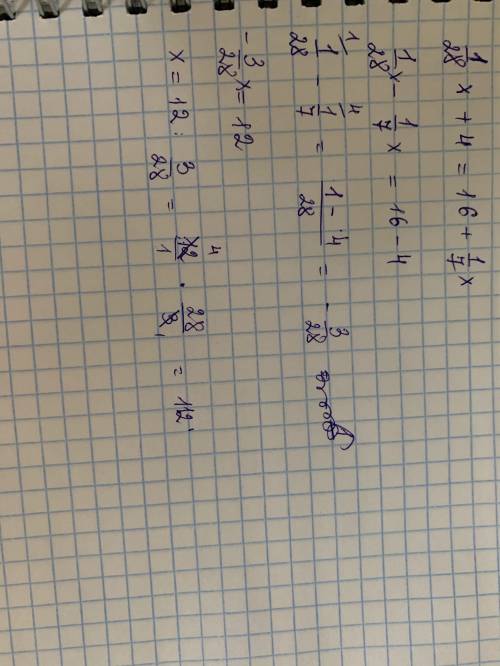 1/28 x + 4 = 16 + 1/7 x
1/28 x - 1/7 x = 16 - 4
1/28 - 1/7 = 1-4/28 = - 3/28
- 3/28 x = 12
x = 12 : 3/28 = 12/1 · 28/3 = 112